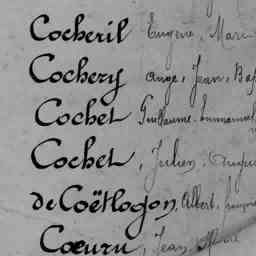 Cocheril Eugène, Mari
Cochery Ange, Jean, Bap
Cochet Guillaume, Emmanuel
Cochet, Julien, Augus
de Coëtlogon, Albert, françois
Cœuru, Jean Pierre